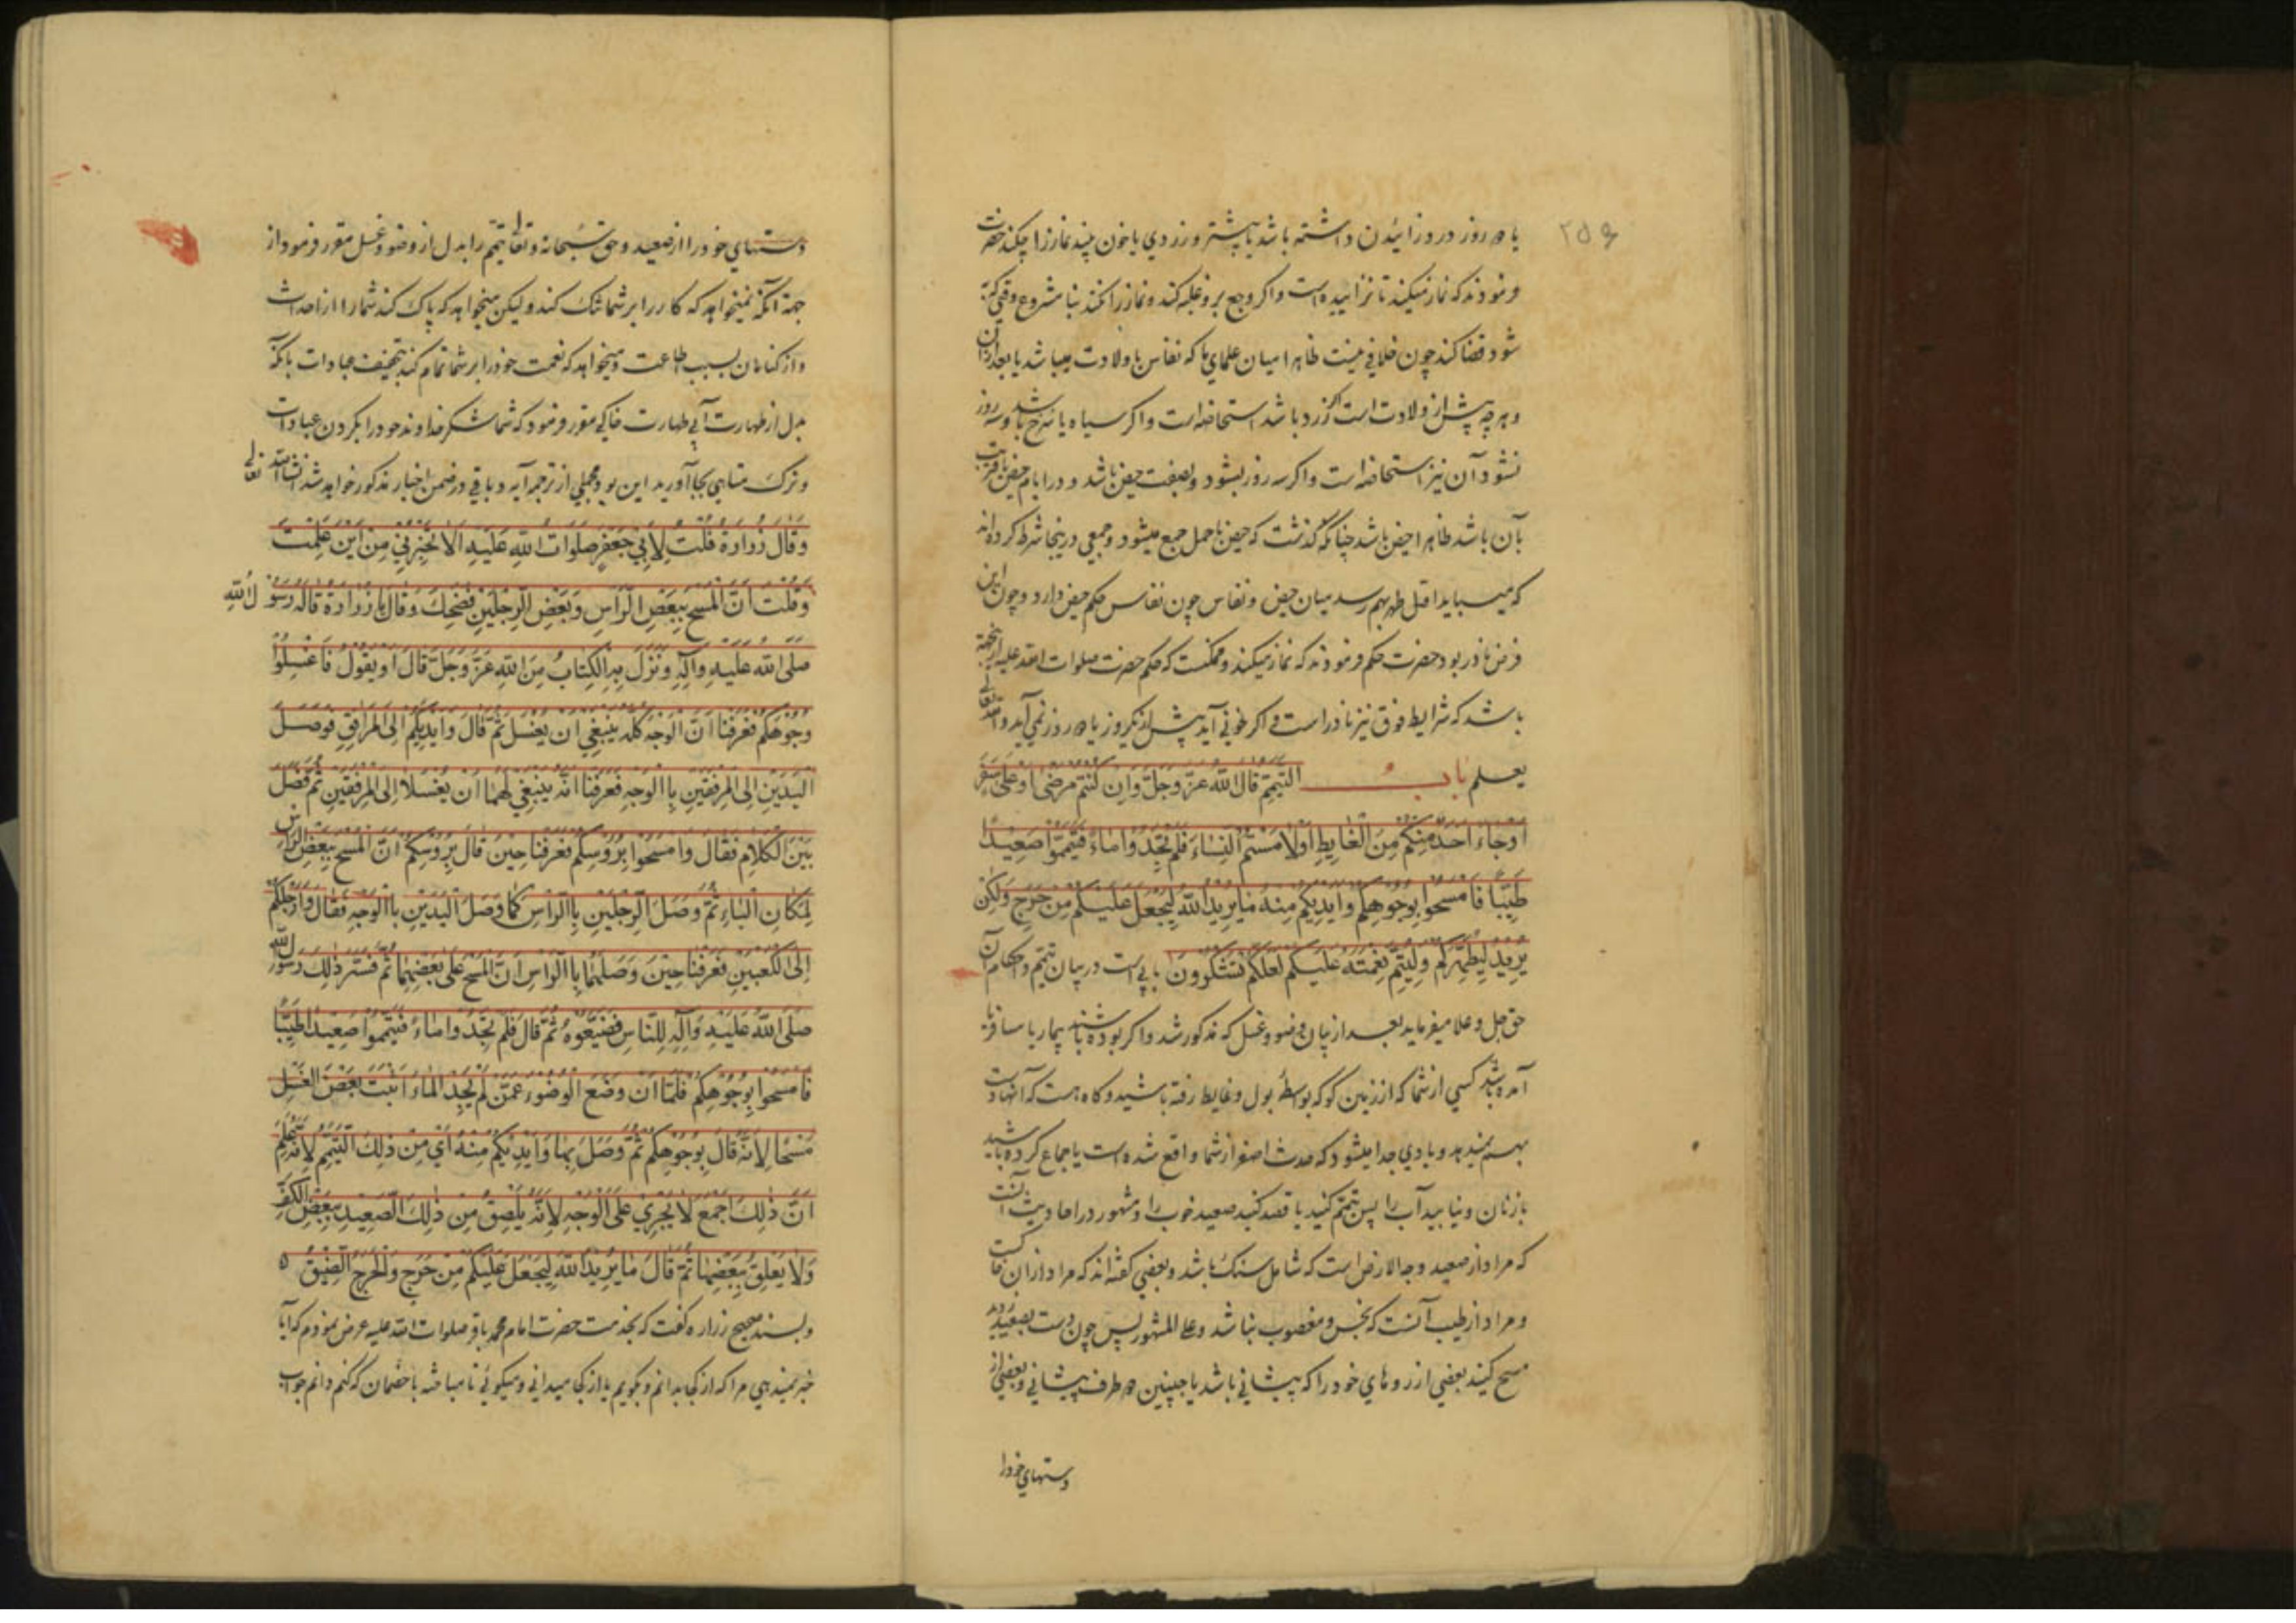 ۲۵۶
یا دو روز درد زائیدن داشته باشد یا پیشتر و زردی یا خون بیند نماز را چکند حضرت
فرمودند که نماز میکند تا نزائیده است و اگر وجع برو غلبه کند و نماز را نکند بنا مشروع وقتی که به
شود قضا کند چون خلافی نیست ظاهرا میان علمای ما که نفاس با ولادت میباشد یا بعد از آن
و هر چه پیش از ولادت است اگر زرد باشد استحاضه است و اگر سیاه یا سرخ باشد و سه روز
نشود آن نیز استحاضه است و اگر سه روز بشود و بصفت حیض باشد و در ایام حیض یا قریب
بآن باشد ظاهرا حیض باشد چنانکه گذشت که حیض با حمل جمع میشود و جمعی در ینجا شرط کرده اند
که میباید اقل طهر بهم رسد میان حیض و نفاس چون نفاس حکم حیض دارد و چون این
فرض نادر بود حضرت حکم فرمودند که نماز میکند و ممکنست که حکم حضرت صلوات الله علیه ازینجهة
باشد که شرایط فوق نیز نادر است و اگر خونی آید پیش از یکروز یا دو روز نمی آید و الله تعالی
یعلم باب التیمم قال الله عز وجل وان کنتم مرضی او علی سفر
او جاء احد منکم من الغایط او لامستم النساء فلم تجدوا ماء فتیمموا صعیدا
طیبا فامسحوا بوجوهکم وایدیکم منه ما یرید الله لیجعل علیکم من حرج ولکن
یرید لیطهرکم ولیتم نعمته علیکم لعلکم تشکرون بابی است در بیان تیمم و احکام آن
حق جل و علا میفرماید بعد از بیان وضو و غسل که مذکور شد و اگر بوده باشند بیمار یا مسافر یا
آمده باشد کسی از شما که از زمین گو که بواسطهٔ بول و غایط رفته باشید و گاه هست که آنها
بهم نمیرسد و بادی جدا میشود که حدث اصغر از شما واقع شده است یا جماع کرده باشید
با زنان و نیابید آب را پس تیمم کنید یا قصد کنید صعید خوب را و مشهور در احادیث آنست
که مراد از صعید وجه الارض است که شامل سنگ باشد و بعضی گفته اند که مراد از آن خاکست
و مراد از طیب آنست که نجس و مغصوب نباشد و علی المشهور پس چون دست بصعید زدید
مسح کنید بعضی از روهای خود را که پیشانی باشد یا جبینین دو طرف پیشانی و بعضی از
دستهای خود را
دستهای خود را از صعید و حق سبحانه و تعالی تیمم را بدل از وضو و غسل مقرر فرمود از
جهة آنکه نمیخواهد که کار را بر شما تنگ کند و لیکن میخواهد که پاک کند شما را از احداث
و از گناهان بسبب طاعت و میخواهد که نعمت خود را بر شما تمام کند بتخفیف عبادات بآنکه
بدل از طهارت آبی طهارت خاکی مقرر فرمود که شما شکر خداوند خود را بکردن عبادات
و ترک مناهی بجا آورید این بود مجملی از ترجمه آیه و باقی در ضمن اخبار مذکور خواهد شد انشاء الله تعالی
وَقالَ زُرارَةُ قُلتُ لِأبي جَعفَرٍ صَلَواتُ اللهِ عَلَيهِ ألا تُخبِرُني مِن أينَ عَلِمتَ
وَقُلتَ أنَّ المَسحَ بِبَعضِ الرَّأسِ وَبَعضِ الرِّجلَينِ فَضَحِكَ وَقالَ يا زُرارَةُ قالَهُ رَسُولُ اللهِ
صَلَّى اللهُ عَلَيهِ وَآلِهِ وَنَزَلَ بِهِ الكِتابُ مِنَ اللهِ عَزَّ وَجَلَّ قالَ أو يَقُولُ فَاغسِلُوا
وُجُوهَكُم فَعَرَفنا أنَّ الوَجهَ كُلَّهُ يَنبَغي أن يُغسَلَ ثُمَّ قالَ وَأيدِيَكُم إلَى المَرافِقِ فَوَصَلَ
اليَدَينِ إلَى المِرفَقَينِ بِالوَجهِ فَعَرَفنا أنَّهُ يَنبَغي لَهُما أن يُغسَلا إلَى المِرفَقَينِ ثُمَّ فَصَّلَ
بَينَ الكَلامِ فَقالَ وَامسَحُوا بِرُؤُسِكُم فَعَرَفنا حِينَ قالَ بِرُؤُسِكُم أنَّ المَسحَ بِبَعضِ الرَّأسِ
لِمَكانِ الباءِ ثُمَّ وَصَلَ الرِّجلَينِ بِالرَّأسِ كَما وَصَلَ اليَدَينِ بِالوَجهِ فَقالَ وَأرجُلَكُم
إلَى الكَعبَينِ فَعَرَفنا حِينَ وَصَلَهُما بِالرَّأسِ أنَّ المَسحَ عَلى بَعضِهِما ثُمَّ فَسَّرَ ذلِكَ رَسُولُ اللهِ
صَلَّى اللهُ عَلَيهِ وَآلِهِ لِلنّاسِ فَضَيَّعُوهُ ثُمَّ قالَ فَلَم تَجِدُوا ماءً فَتَيَمَّمُوا صَعِيداً طَيِّباً
فَامسَحُوا بِوُجُوهِكُم فَلَمّا أن وَضَعَ الوُضُوءَ عَمَّن لَم يَجِدِ الماءَ أثبَتَ بَعضَ الغَسلِ
مَسحاً لِأنَّهُ قالَ بِوُجُوهِكُم ثُمَّ وَصَلَ بِها وَأيدِيكُم مِنهُ أي مِن ذلِكَ التَّيَمُّمِ لِأنَّهُ عَلِمَ
أنَّ ذلِكَ أجمَعَ لا يَجرِي عَلَى الوَجهِ لِأنَّهُ يَلصَقُ مِن ذلِكَ الصَّعِيدِ بِبَعضِ الكَفِّ
وَلا يَعلَقُ بِبَعضِها ثُمَّ قالَ ما يُرِيدُ اللهُ لِيَجعَلَ عَلَيكُم مِن حَرَجٍ وَالحَرَجُ الضِّيقُ
و بسند صحیح زراره گفت که بخدمت حضرت امام محمد باقر صلوات الله علیه عرض نمودم که آیا
خبر نمیدهی مرا که از کجا بدانم و بگویم یا از کجا میدانی و میگوئی تا مباحثه با خصمان که کنم دانم جواب